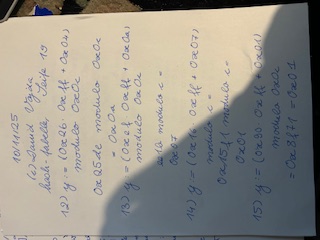 10/1/25
(c) David Vajda
hash-tabelle, Seite 19
12) y = (0x26 · 0xff + 0x04)
modulo 0x0c
0x25de modulo 0x0c
= 0x0a
13) y = (0x2f · 0xff + 0x0a)
modulo 0x0c
modulo c =
0x07
14) y = (0x16 · 0xff + 0x07)
modulo c =
0x15f1 modulo c =
0x01
15) y = (0x90 · 0xff + 0x01)
modulo 0x0c
= 0x8f71 = 0x01